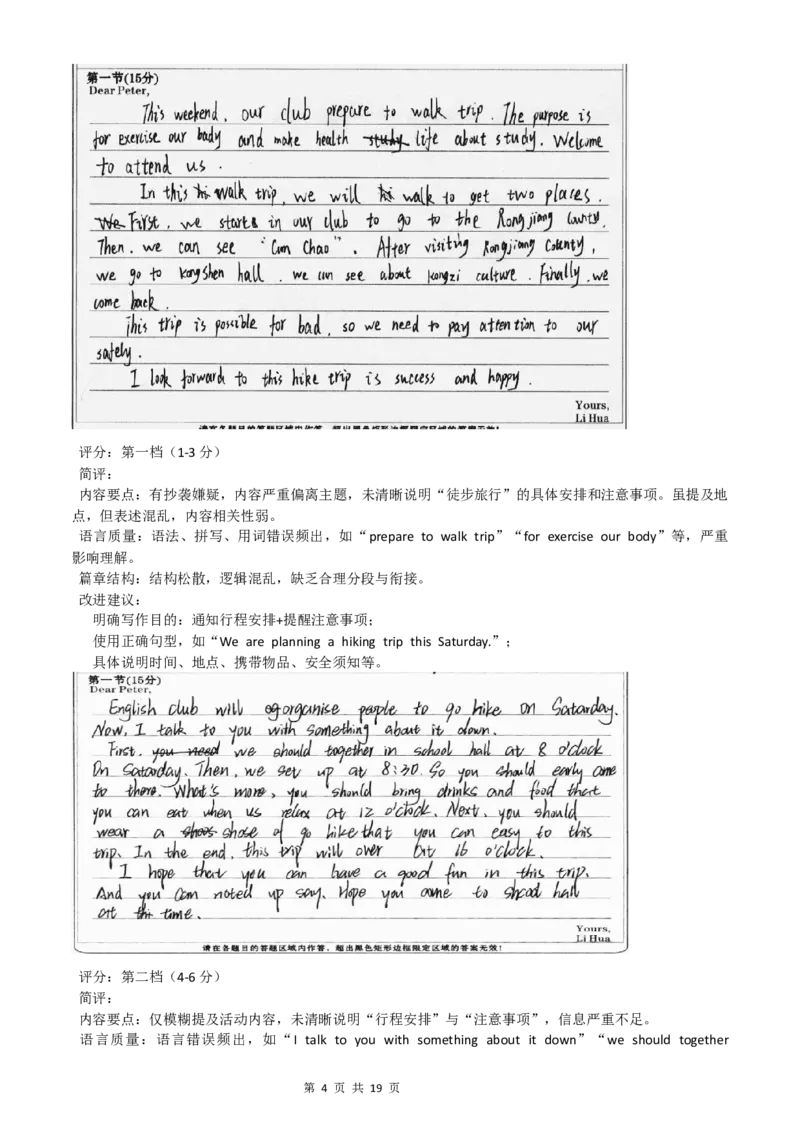 第一节(15分)
Dear Peter,
This weekend, our club prepare to walk trip. The purpose is
for exercise our body and make health study life about study. Welcome
to attend us.
In this hi walk trip, we will hi walk to get two places.
We First, we starts in our club to go to the Rongjiang County.
Then, we can see "Cun Chao". After visiting Rongjiang County,
we go to kongshen hall. we can see about kongzi culture. Finally, we
come back.
This trip is possible for bad, so we need to pay attention to our
safely.
I look forward to this hike trip is success and happy.
Yours,
Li Hua
请在各题目的答题区域内作答，超出黑色矩形边框限定区域的答案无效!
评分：第一档（1-3 分）
简评：
内容要点：有抄袭嫌疑，内容严重偏离主题，未清晰说明“徒步旅行”的具体安排和注意事项。虽提及地
点，但表述混乱，内容相关性弱。
语言质量：语法、拼写、用词错误频出，如“prepare to walk trip”“for exercise our body”等，严重
影响理解。
篇章结构：结构松散，逻辑混乱，缺乏合理分段与衔接。
改进建议：
明确写作目的：通知行程安排+提醒注意事项；
使用正确句型，如“We are planning a hiking trip this Saturday.”；
具体说明时间、地点、携带物品、安全须知等。
第一节(15分)
Dear Peter,
English club will og organise people to go hike on Satarday.
Now, I talk to you with something about it down.
First, you need we should together in school hall at 8 o'clock
On Sataoday. Then, we set up at 8:30. So you should early come
to there. What's more, you should bring drinks and food that
you can eat when us relax at 12 o'clock. Next, you should
wear a shoes shose of go hike that you can easy to this
trip. In the end, this trip will over at 16 o'clock.
I hope that you can have a good fun in this trip.
And you can noted up say. Hope you come to shcool hall
at thi time.
Yours,
Li Hua
请在各题目的答题区域内作答，超出黑色矩形边框限定区域的答案无效!
评分：第二档（4-6 分）
简评：
内容要点：仅模糊提及活动内容，未清晰说明“行程安排”与“注意事项”，信息严重不足。
语言质量：语言错误频出，如“I talk to you with something about it down”“we should together
第 4 页 共 19 页